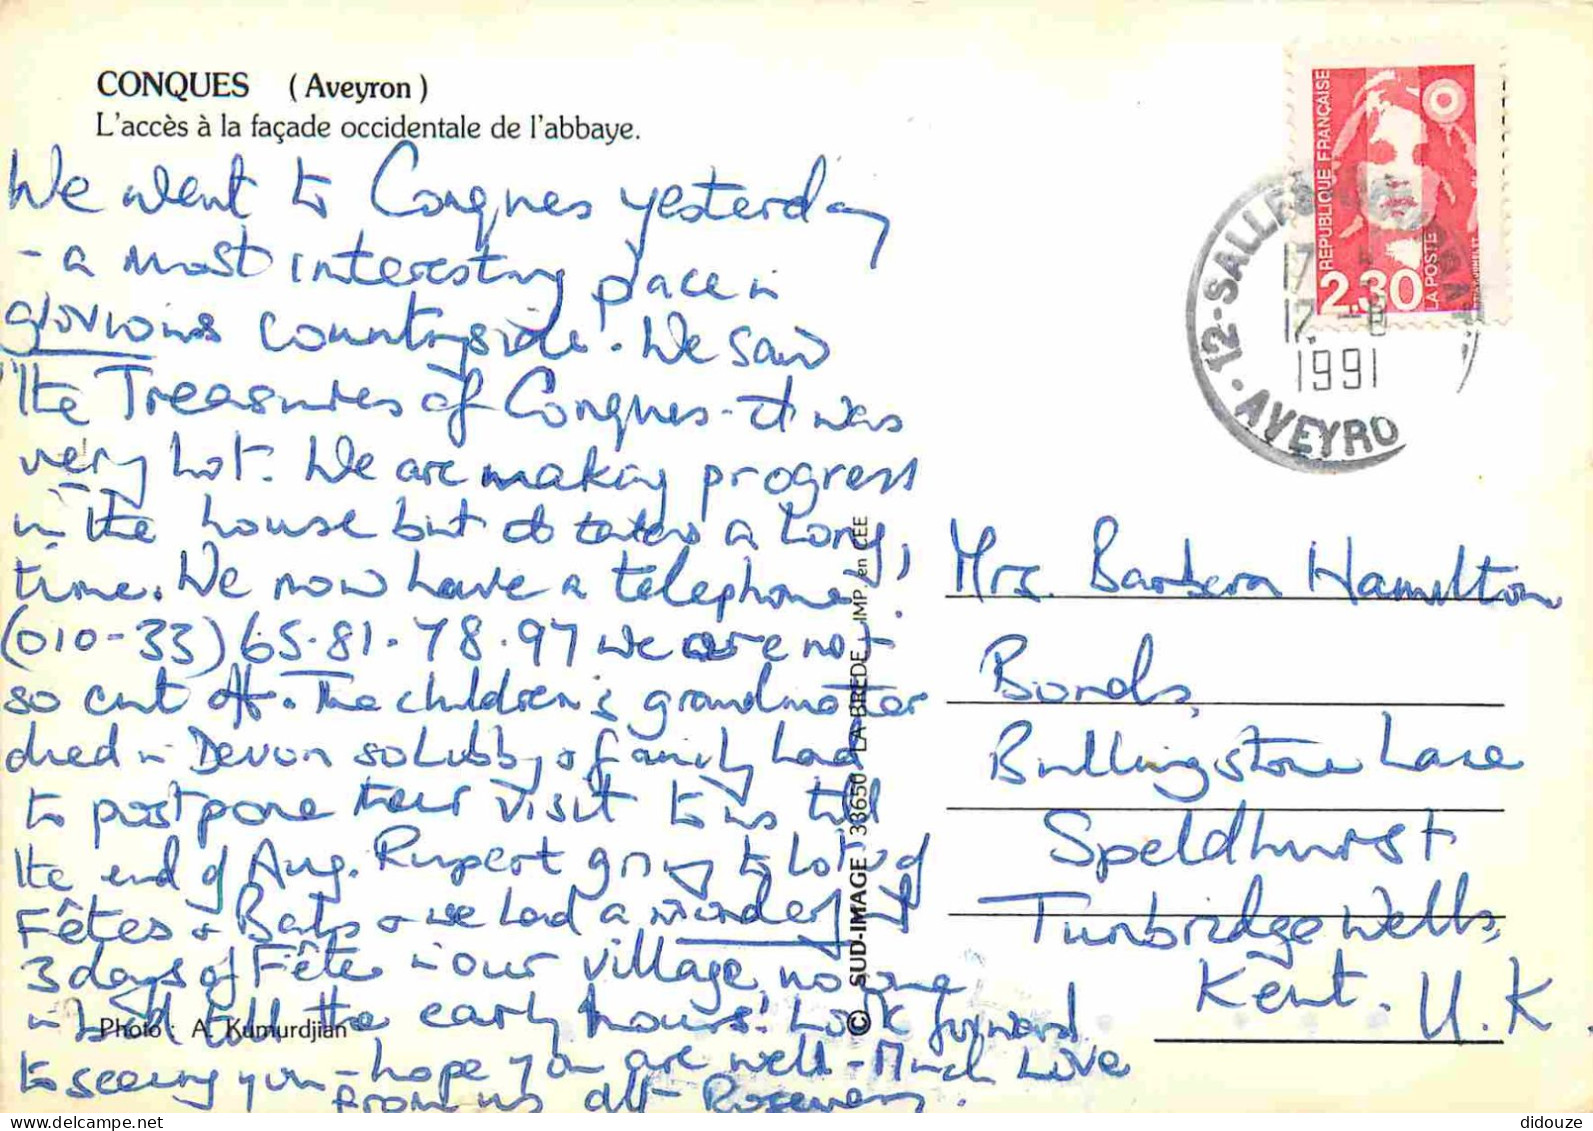 CONQUES (Aveyron)
L'accès à la façade occidentale de l'abbaye.
We went to Conques yesterday
- a most interesting place in
glorious countryside. We saw
the Treasures of Conques - it was
very hot. We are making progress
in the house but it takes a long
time. We now have a telephone!
(010-33) 65.81.78.97 we are not
so cut off. The children's grandmother
died in Devon so Lubby & family had
to postpone their visit to us till
the end of Aug. Rupert going to lots of
Fêtes & Balls & we had a wonderful
3 days of Fête in our village, no one
in bed till the early hours! Look forward
to seeing you - hope you are well - Much Love
from us all Rosemary.
Photo : A. Kumurdjian
© SUD-IMAGE 33650 LA BREDE IMP. en CEE
REPUBLIQUE FRANÇAISE
2,30
LA POSTE
12-SALLES
17
12 -8
1991
AVEYRO
Mrs. Barbara Hamilton
Bonds,
Bullingstone Lane
Speldhurst
Tunbridge Wells,
Kent. U.K.
delcampe.net
didouze